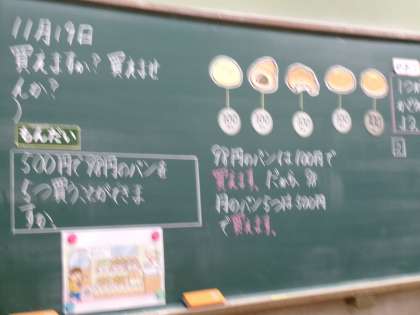 11月19日
買えますか？買えませ
んか？
もんだい
500円で98円のパンを
5つ買うことができま
すか
100
100
100
100
100
98円のパンは100円で
買えます。だから 98
円のパン5つは500円
で買えます。